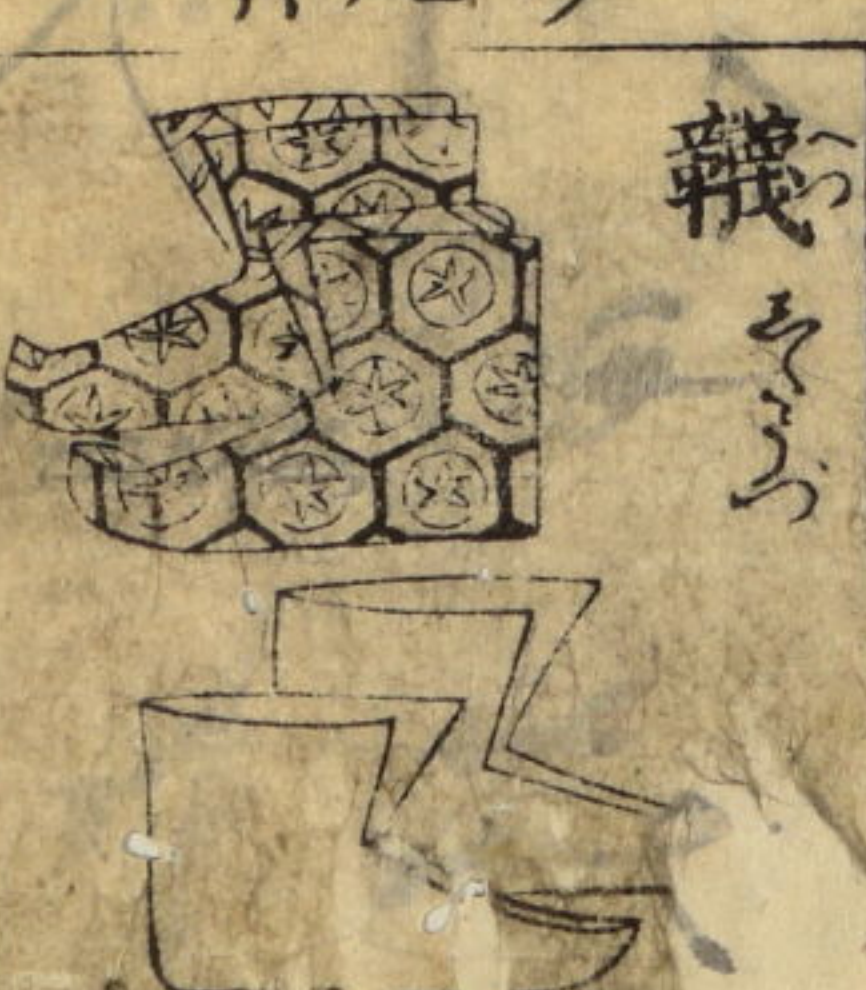 韈 へつ
したうづ